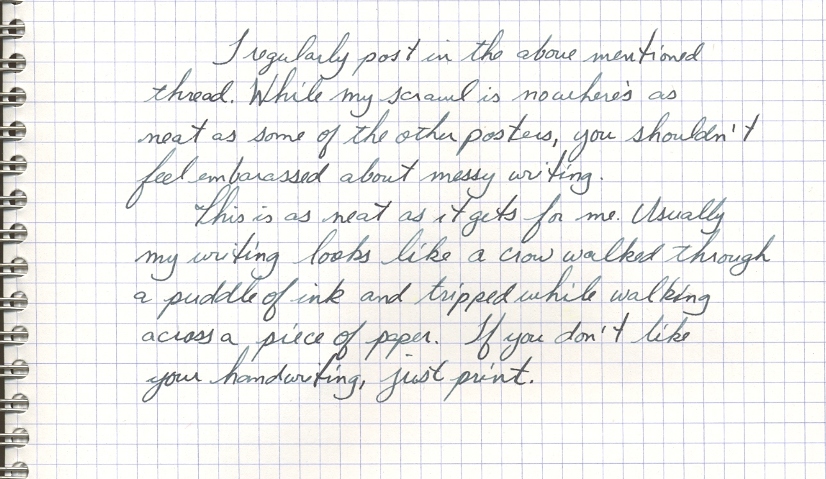 I regularly post in the above mentioned
thread. While my scrawl is nowhere's as
neat as some of the other posters, you shouldn't
feel embarassed about messy writing.
This is as neat as it gets for me. Usually
my writing looks like a crow walked through
a puddle of ink and tripped while walking
across a piece of paper. If you don't like
your handwriting, just print.